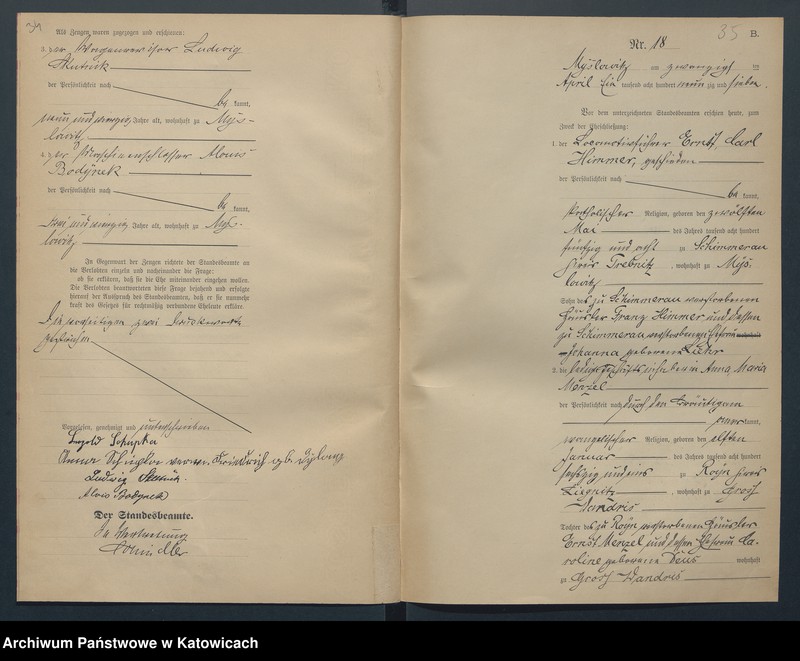 Als Zeugen waren zugezogen und erschienen:
3. der Ludwig
der Persönlichkeit nach
be kannt,
neun und zwanzig Jahre alt, wohnhaft zu Mys-
lowitz
4. der Maschinenschlosser Alois
Bodynek
der Persönlichkeit nach
be kannt,
zwei und zwanzig Jahre alt, wohnhaft zu Mys-
lowitz
In Gegenwart der Zeugen richtete der Standesbeamte an
die Verlobten einzeln und nacheinander die Frage:
ob sie erklären, daß sie die Ehe miteinander eingehen wollen.
Die Verlobten beantworteten diese Frage bejahend und erfolgte
hierauf der Ausspruch des Standesbeamten, daß er sie nunmehr
kraft des Gesetzes für rechtmäßig verbundene Eheleute erkläre.
Die vorseitigen zwei Druckworte
gestrichen
Vorgelesen, genehmigt und unterschrieben
Leopold
Anna Friedrich geb.
Ludwig
Alois Bodynek
Der Standesbeamte.
In Vertretung
35 B.
Nr. 18
Myslowitz am zwanzigsten
April Ein tausend acht hundert neun zig und sieben.
Vor dem unterzeichneten Standesbeamten erschienen heute, zum
Zweck der Eheschließung:
1. der Locomotivführer Ernst Carl
Himmer, geschieden
der Persönlichkeit nach
be kannt,
katholischer Religion, geboren den zwölften
Mai des Jahres tausend acht hundert
fünfzig und acht zu Schimmerau
Kreis Trebnitz, wohnhaft zu Mys-
lowitz
Sohn des zu Schimmerau verstorbenen
Häusler Franz Himmer und dessen
zu Schimmerau verstorbenen Ehefrau wohnhaft
Johanna geborenen Lühr
2. die Anna Maria
Menzel
der Persönlichkeit nach durch den Bräutigam
anerkannt,
evangelischer Religion, geboren den elften
Januar des Jahres tausend acht hundert
sechszig und eins zu Royn Kreis
Liegnitz, wohnhaft zu Groß
Wandris
Tochter des zu Royn verstorbenen Häusler
Ernst Menzel und dessen Ehefrau Ca-
roline geborenen Deus wohnhaft
zu Groß Wandris
Archiwum Państwowe w Katowicach